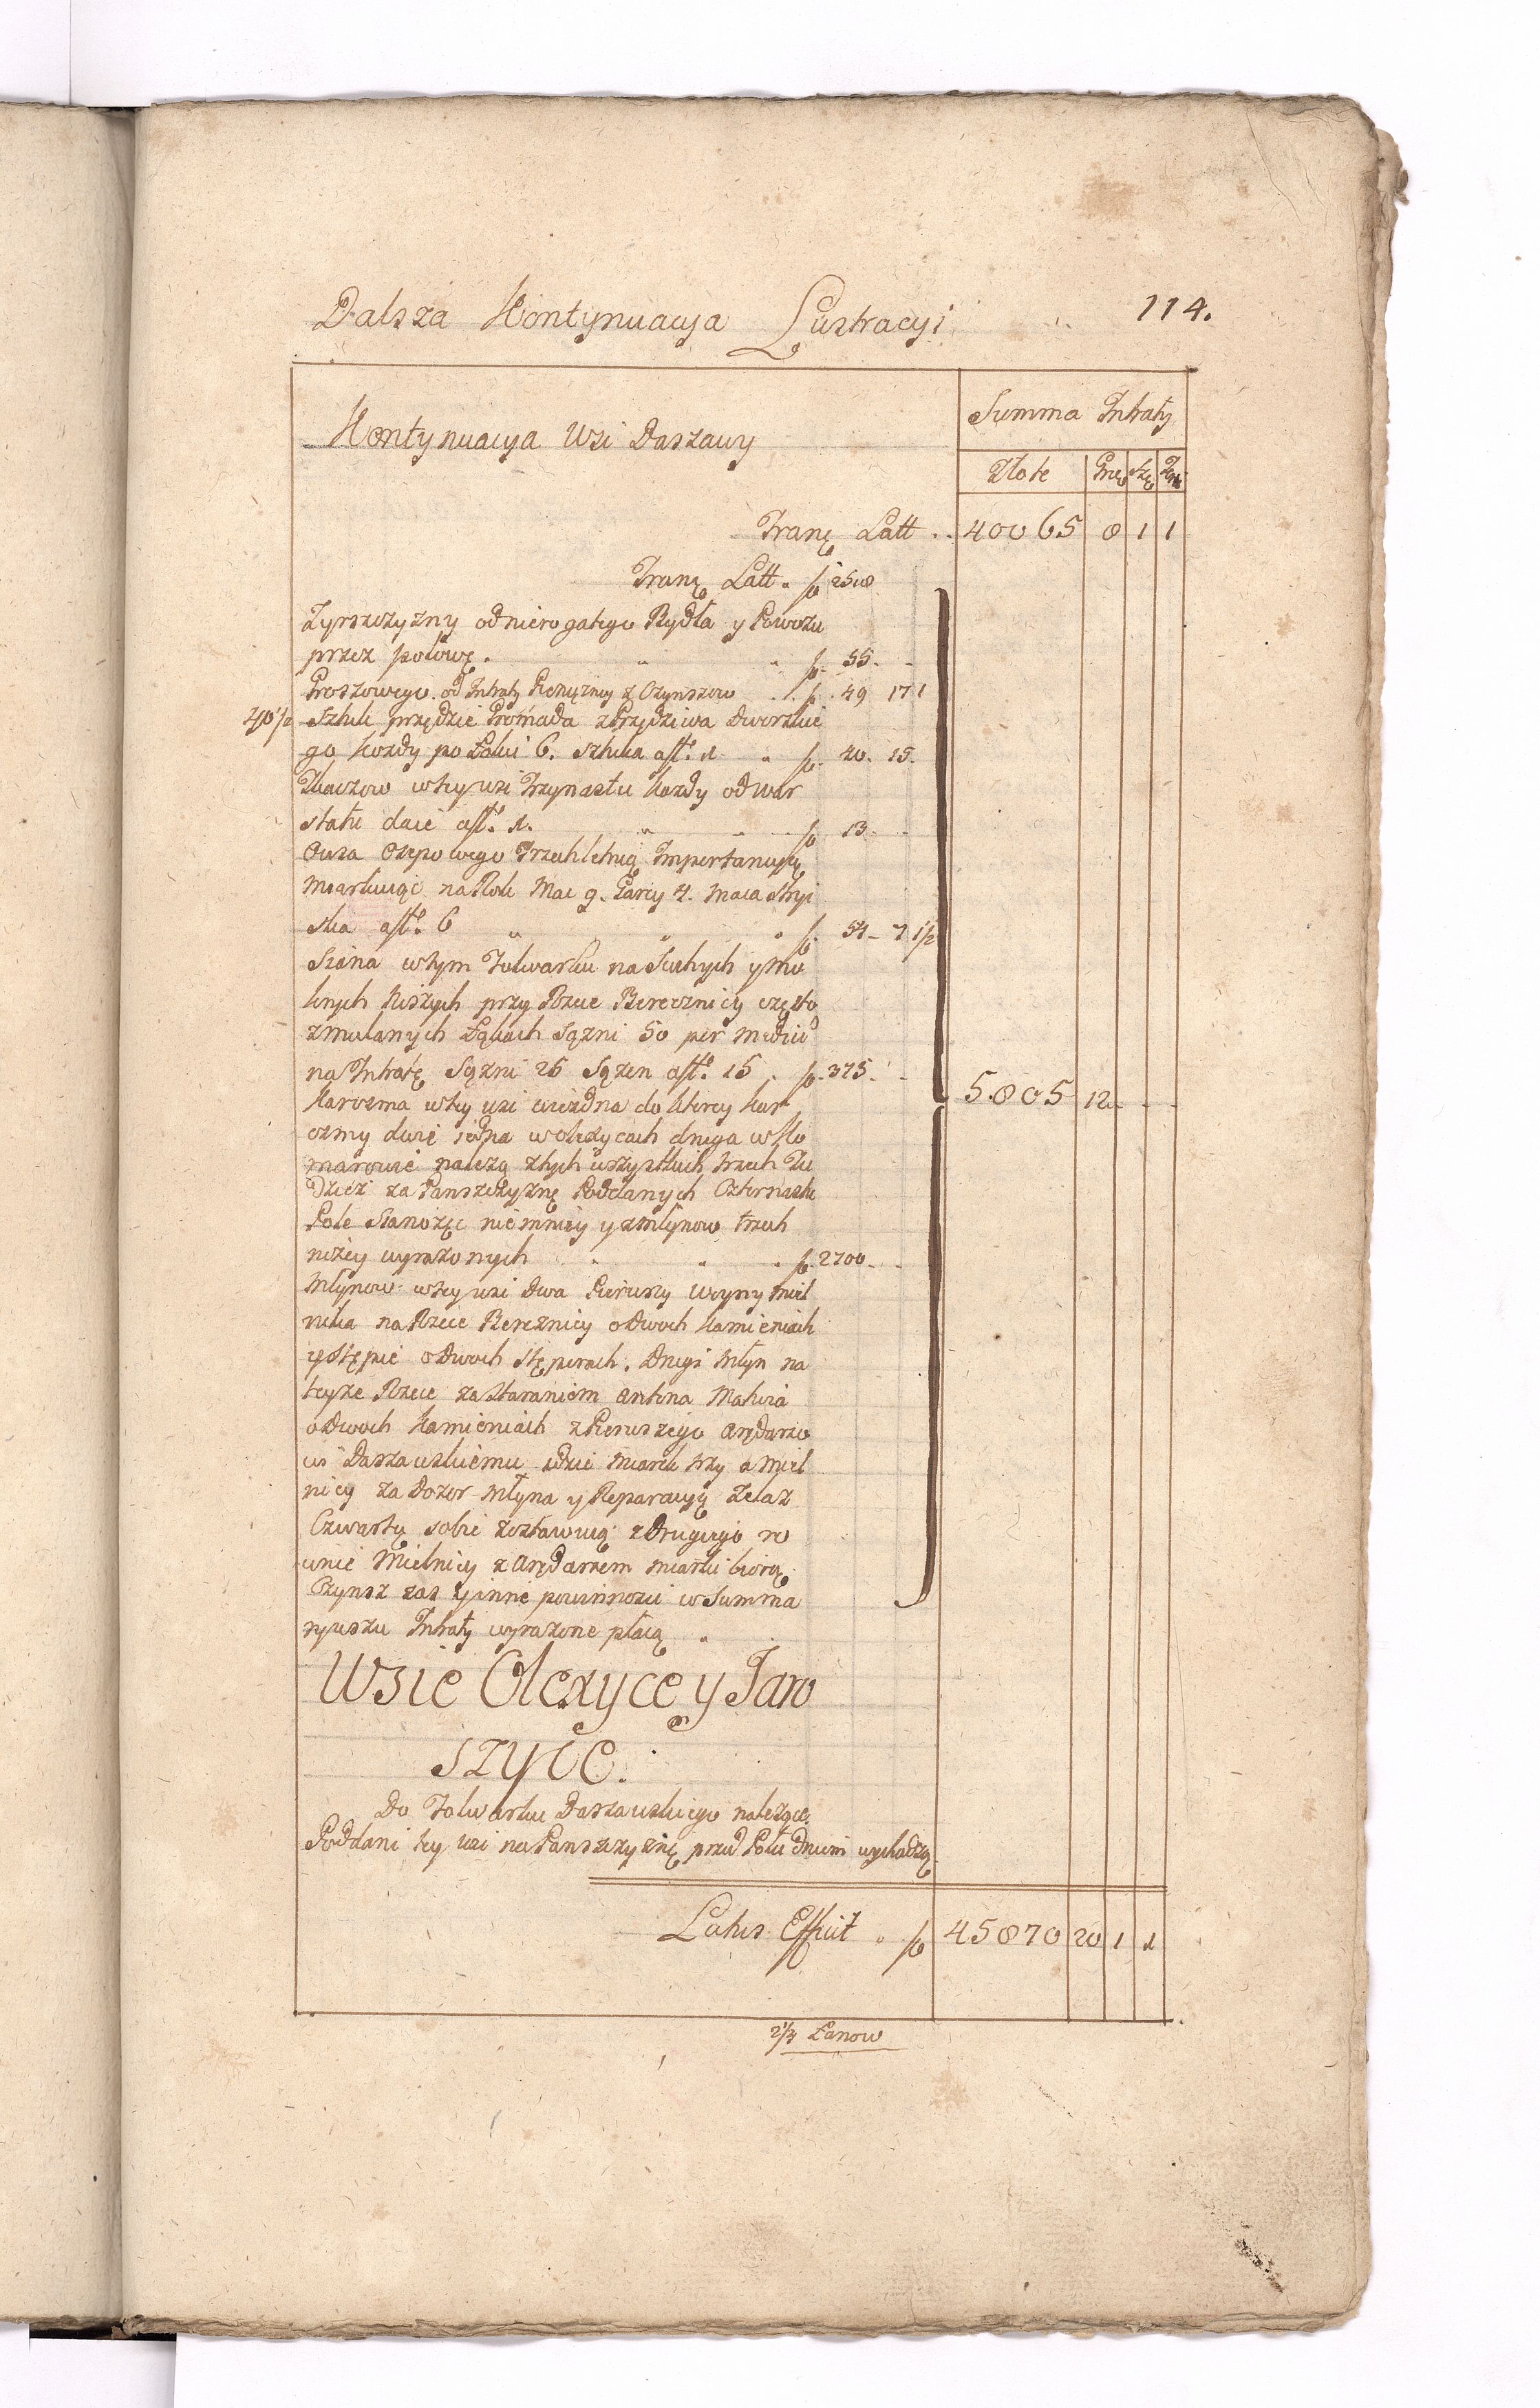 Dalsza Kontynuacya Lustracyi 114.
Kontynuacya Wsi Daszawy
Summa Intraty
Złote
Tranę Latt .. 40065 8 1 1
Tranę Latt. fl 2518
Zyrszczyzny od nierogatego Bydła y Powozu
przez połowę. fl. 55.
Groszowego od Intraty Pieniężney z Czynszow fl. 49 17 1
Sztuk przędzie Gromada z Przędziwa dworskie
go kozdy po Łokci 6. sztuka aft. 1 fl. 40. 15.
Tkaczow w tey wsi Trzynastu kazdy od war
statu daie aft. 1. fl. 13.
Owsa Osepowego Trzechletnią Importancyą
miarkuiąc na Rok Mac 9. Garcy 4. Maca Stryi
ska aft. 6 fl. 54 - 7 1/2
Siana w tym Folwarku na Suchych y Mo
krych przy Rzece Berecznicy często
zmulanych Łąkach Sązni 50 per medium
na Intratę Sązni 25 Sązen aft. 15. fl. 375.
5805 12
Karczma w tey wsi wiezdna do ktorey kar
czmy dwie iedna w Olexycach druga w Ko
marowie nalezą z tych wszystkich trzech Tu
dziez za Panszczyznę Poddanych Czternastu
Pole Sianozęc niemniey y z młynow trzech
nizey wyrazonych fl. 2700.
Młynow w tey wsi Dwa Pierwszy Iwyny Miel
nika na Rzece Bereznicy o Dwoch kamieniach
y Stępie o Dwoch Stęporach. Drugi Młyn na
teyze Rzece za Staraniem Antona
o Dwoch kamieniach z Pierwszego Arędarzo
wi Daszawskiemu idzie miarek trzy a Miel
nicy za Dozor Młyna y Reparacyą Zelaz
Czwartą sobie zostawuią z Drugiego ro
wnie Mielnicy z Arędarzem miarki biorą
Czynsz zas y inne powinnosci w Summa
ryuszu Intraty wyrazone płacą
Wsie Olexyce y Jaro
szyce.
Do Folwarku Daszawskiego nalezące
Poddani tey wsi na Panszczyznę przed Połudnіem wychodzą
Latus Efficit fl 45870 20 1 1
2/4 Łanow